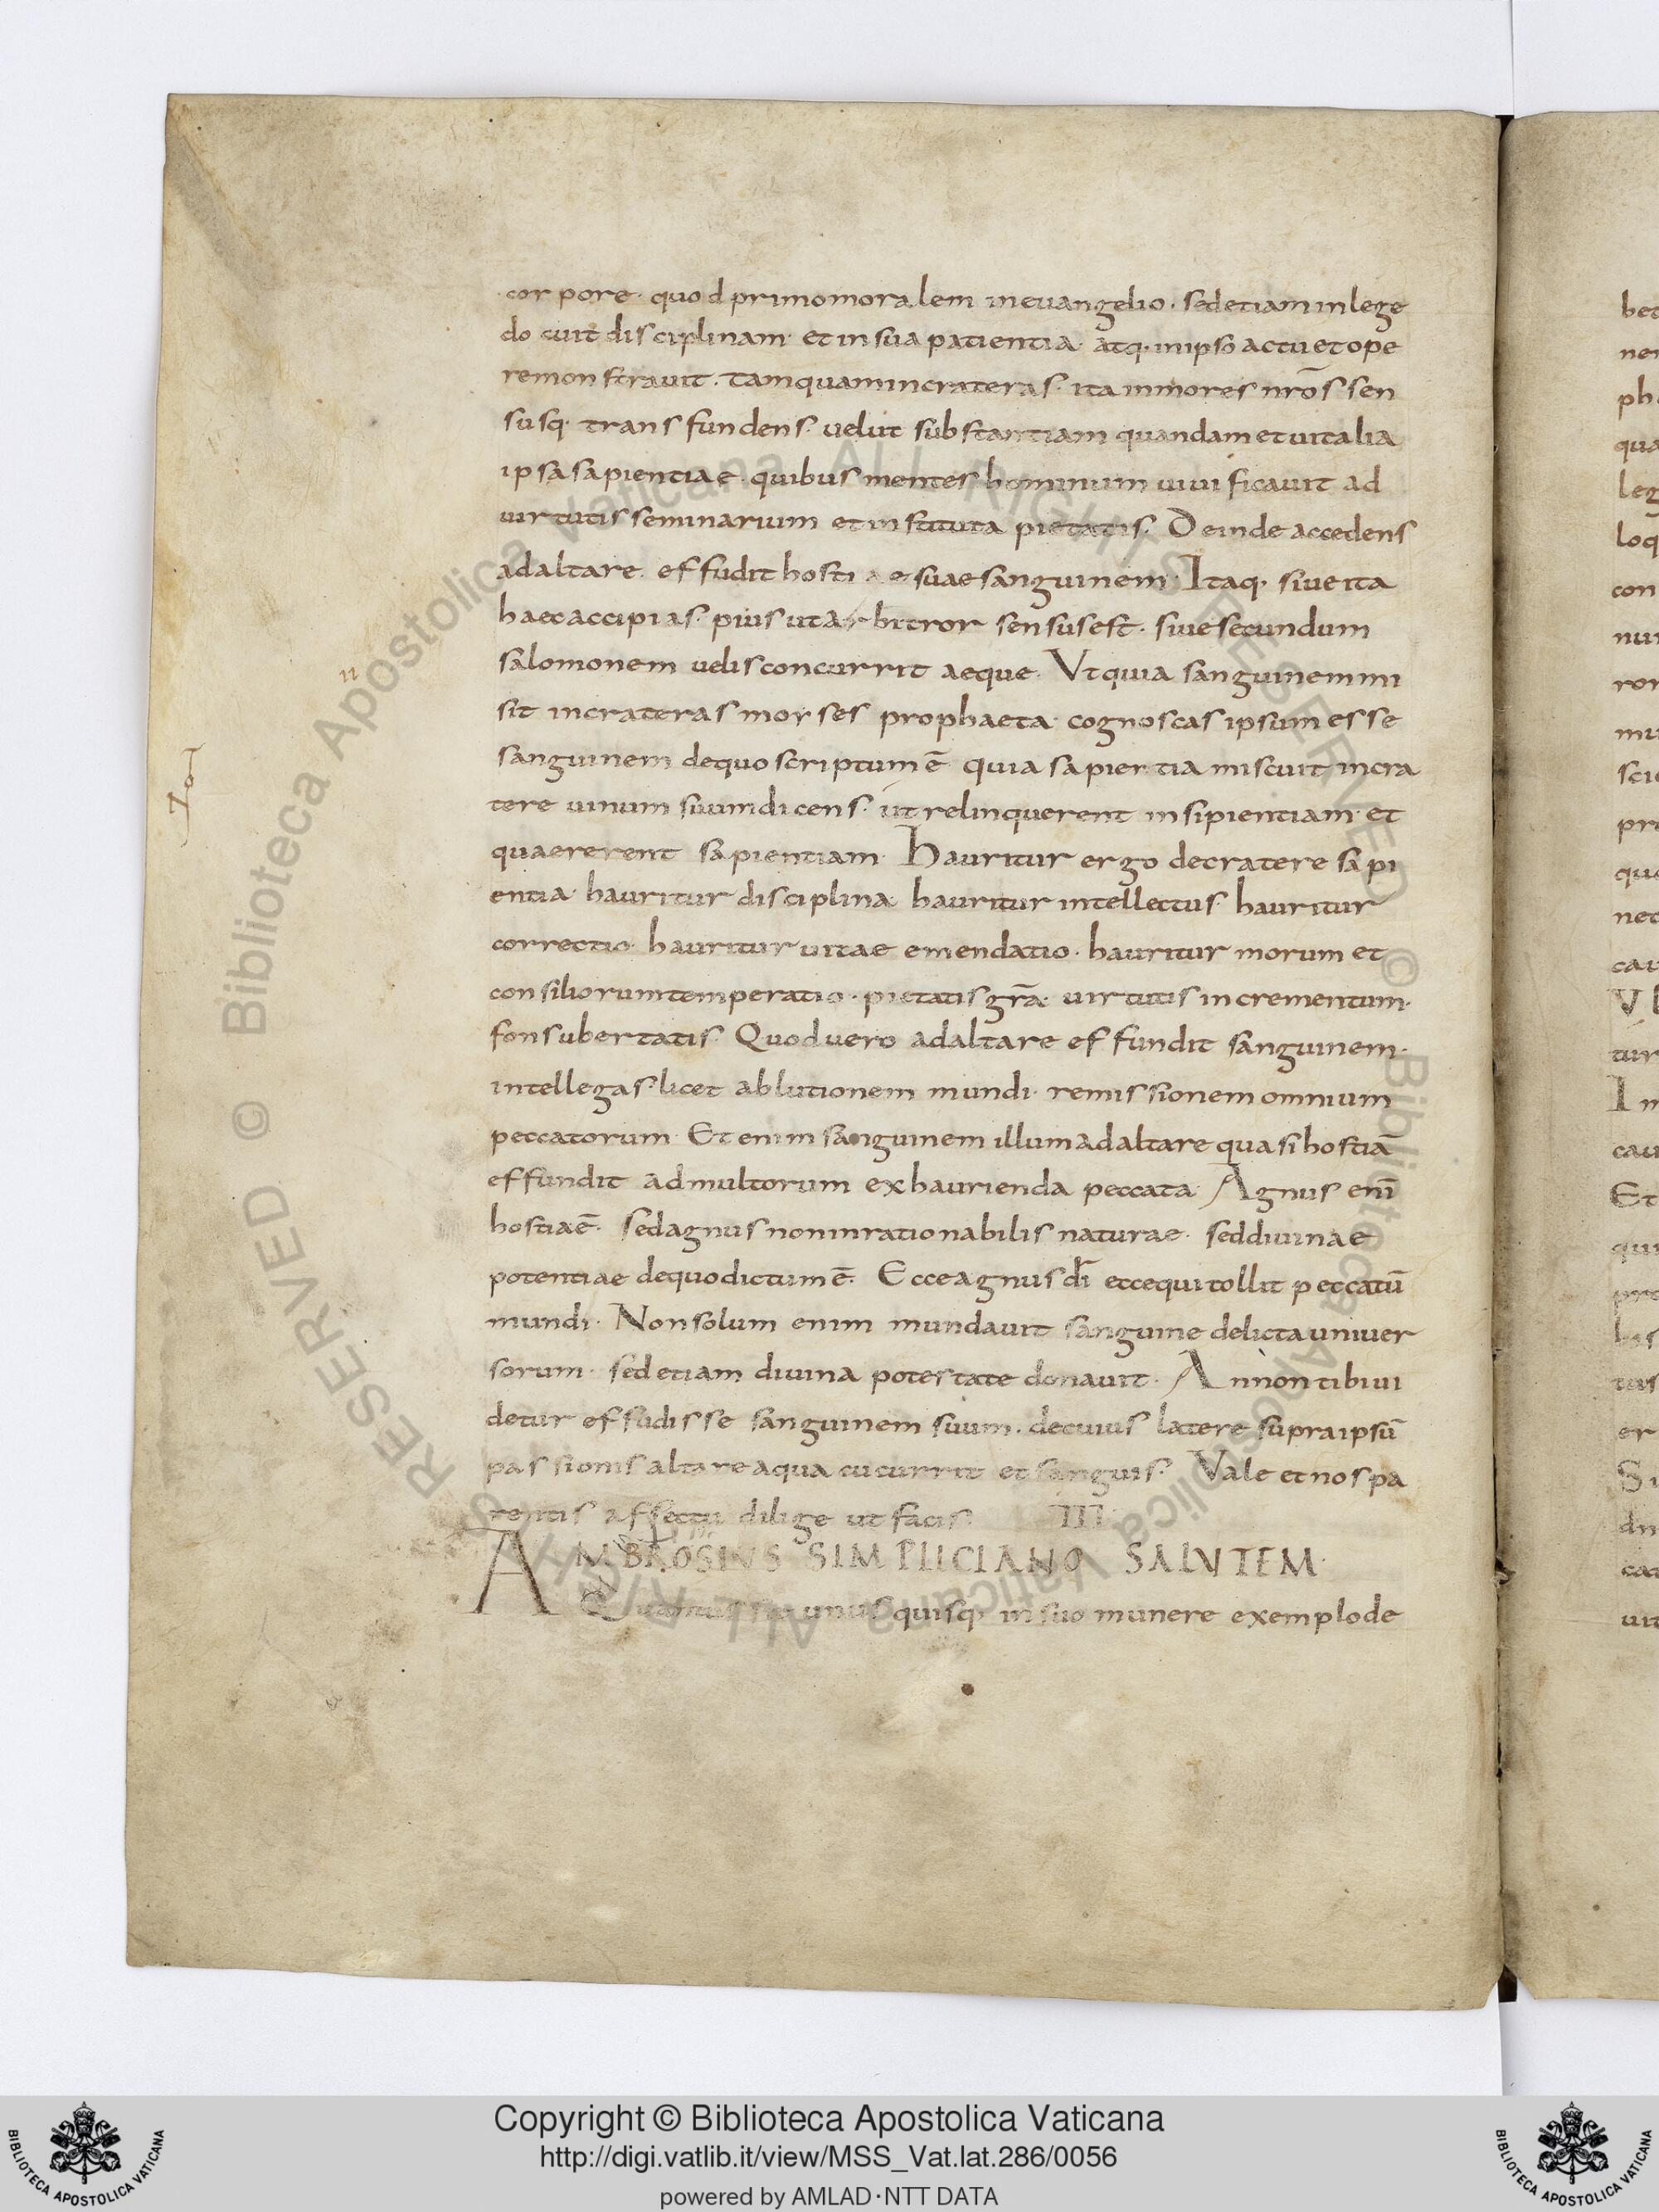 corpore· quod primo moralem in euangelio· sed etiam in lege
docuit disciplinam· et in sua patientia· atq· in ipso actu et ope
re monstrauit· tamquam in crateras· ita in mores nrōs sen
susq· transfundens· uelut substantiam quandam et uitalia
ipsa sapientiae· quibus mentes hominum uiuificauit ad
uirtutis seminarium et instituta pietatis· Deinde accedens
ad altare· effudit hostiae suae sanguinem· Itaq· siue ita
haec accipias· pius ut arbitror sensus est· siue secundum
salomonem uelis concurrit aeque· Vt quia sanguinem mi
sit in crateras moyses prophaeta· cognoscas ipsum esse
sanguinem de quo scriptum ē quia sapientia miscuit in cra
tere uinum suum dicens· ut relinquerent insipientiam· et
quaererent sapientiam· Hauritur ergo de cratere sapi
entia· hauritur disciplina· hauritur intellectus· hauritur
correctio· hauritur uitae emendatio· hauritur morum et
consiliorum temperatio· pietatis grā· uirtutis incrementum·
fons ubertatis· Quod uero ad altare effundit sanguinem·
intellegas licet ablutionem mundi· remissionem omnium
peccatorum· Etenim sanguinem illum ad altare quasi hostiā
effundit ad multorum exhaurienda peccata· Agnus enī
hostia ē· sed agnus non inrationabilis naturae· sed diuinae
potentiae de quo dictum ē· Ecce agnus dī ecce qui tollit peccatū
mundi· Non solum enim mundauit sanguine delicta uniuer
sorum· sed etiam diuina potestate donauit· An non tibi ui
detur effudisse sanguinem suum· de cuius latere supra ipsū
passionis altare aqua cucurrit et sanguis· Vale et nos pa
rentis affectu dilige ut facis· III
AMBROSIUS SIMPLICIANO SALUTEM·
unusquisq· in suo munere exemplo de
© Biblioteca Apostolica Vaticana ALL RIGHTS RESERVED © Biblioteca Apostolica Vaticana ALL RIGHTS RESERVED
Copyright © Biblioteca Apostolica Vaticana
http://digi.vatlib.it/view/MSS_Vat.lat.286/0056
powered by AMLAD·NTT DATA
BIBLIOTECA APOSTOLICA VATICANA
BIBLIOTECA APOSTOLICA VATICANA